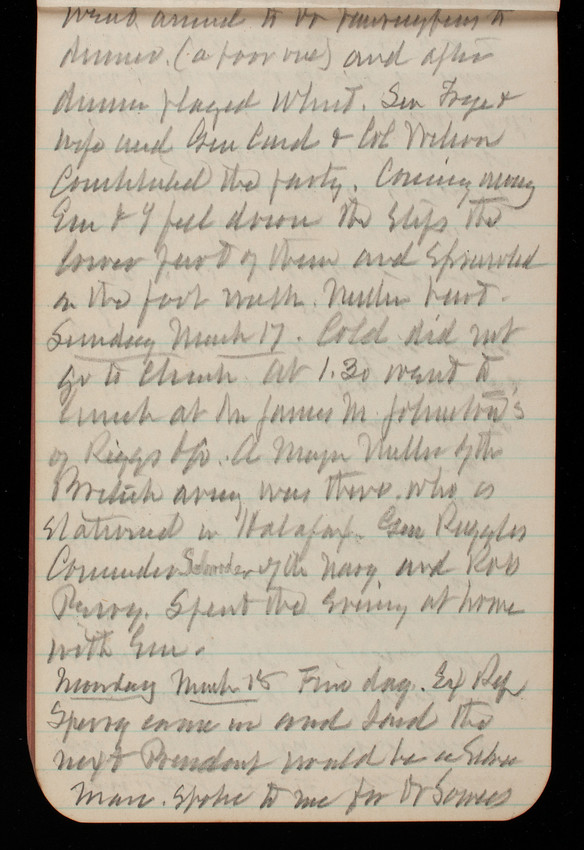 went around to Dr to
dinner. (a poor one) and after
dinner played Whist. Sen Frye &
wife and Gen Card & Col Wilson
Constituted the party. Coming away
Em & I fell down the steps the
lower part of them and sprawled
on the foot walk. Neither hurt.
Sunday March 17. Cold did not
go to Church at 1.30 went to
lunch at Mr James M. Johnston's
of Riggs & Co. A Major of the
British army was there who is
stationed in Halafax. Gen Ruggles
Commander Schroder of the Navy and
Perry. Spent the evening at home
with Em.
Monday March 18 Fine day. Ex Rep
Sperry came in and said the
next President would be a Silver
Man. Spoke to me for Dr Sowers